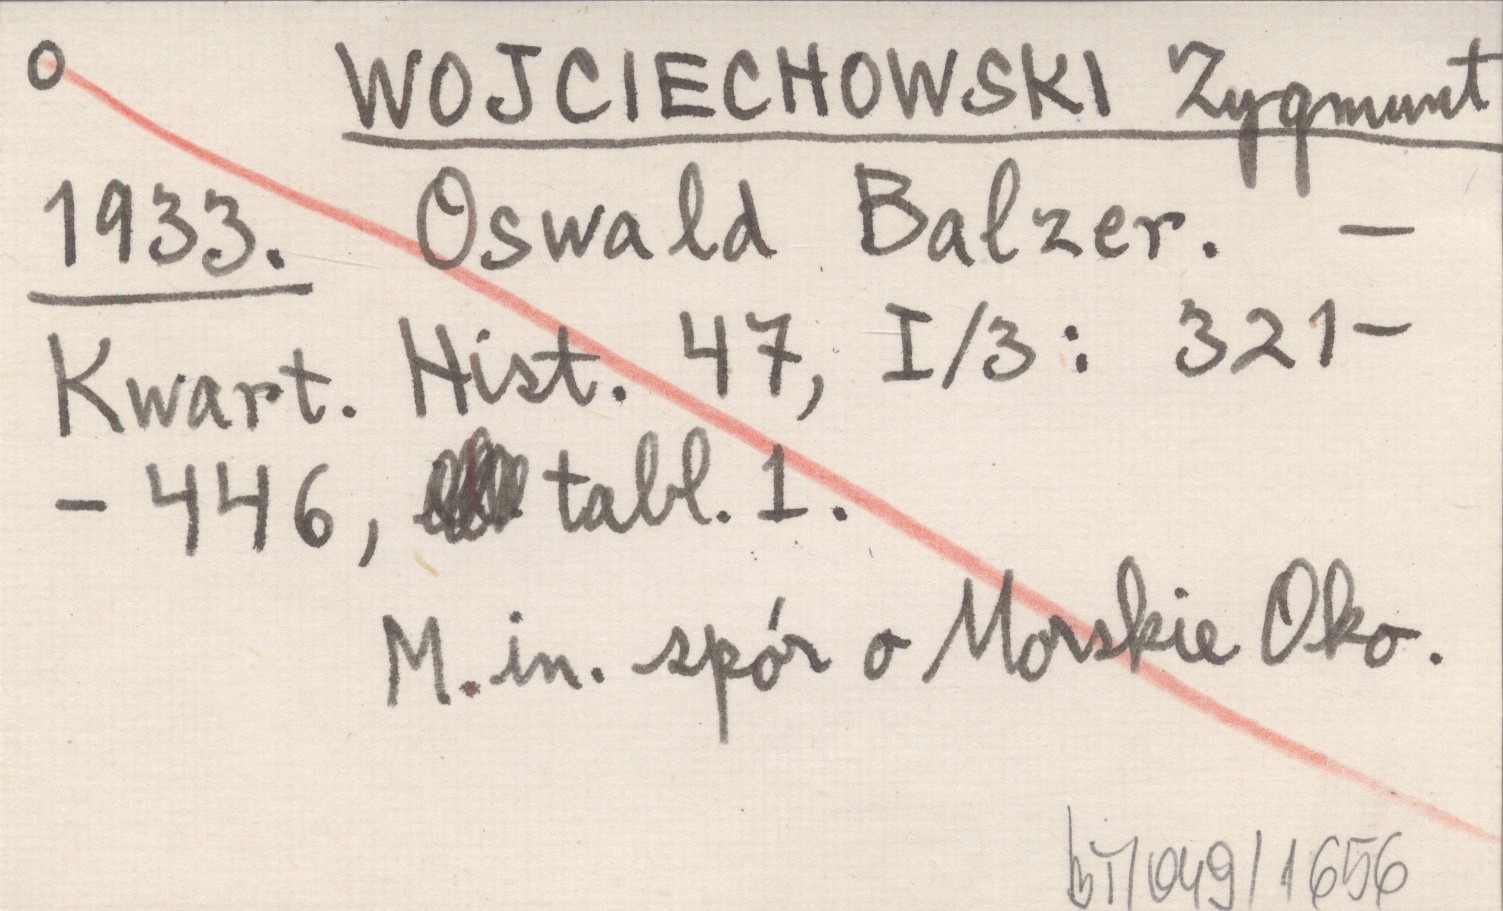 o WOJCIECHOWSKI Zygmunt
1933. Oswald Balzer. –
Kwart. Hist. 47, I/3: 321–
– 446, tabl. 1.
M. in. spór o Morskie Oko.
bT/049/1656